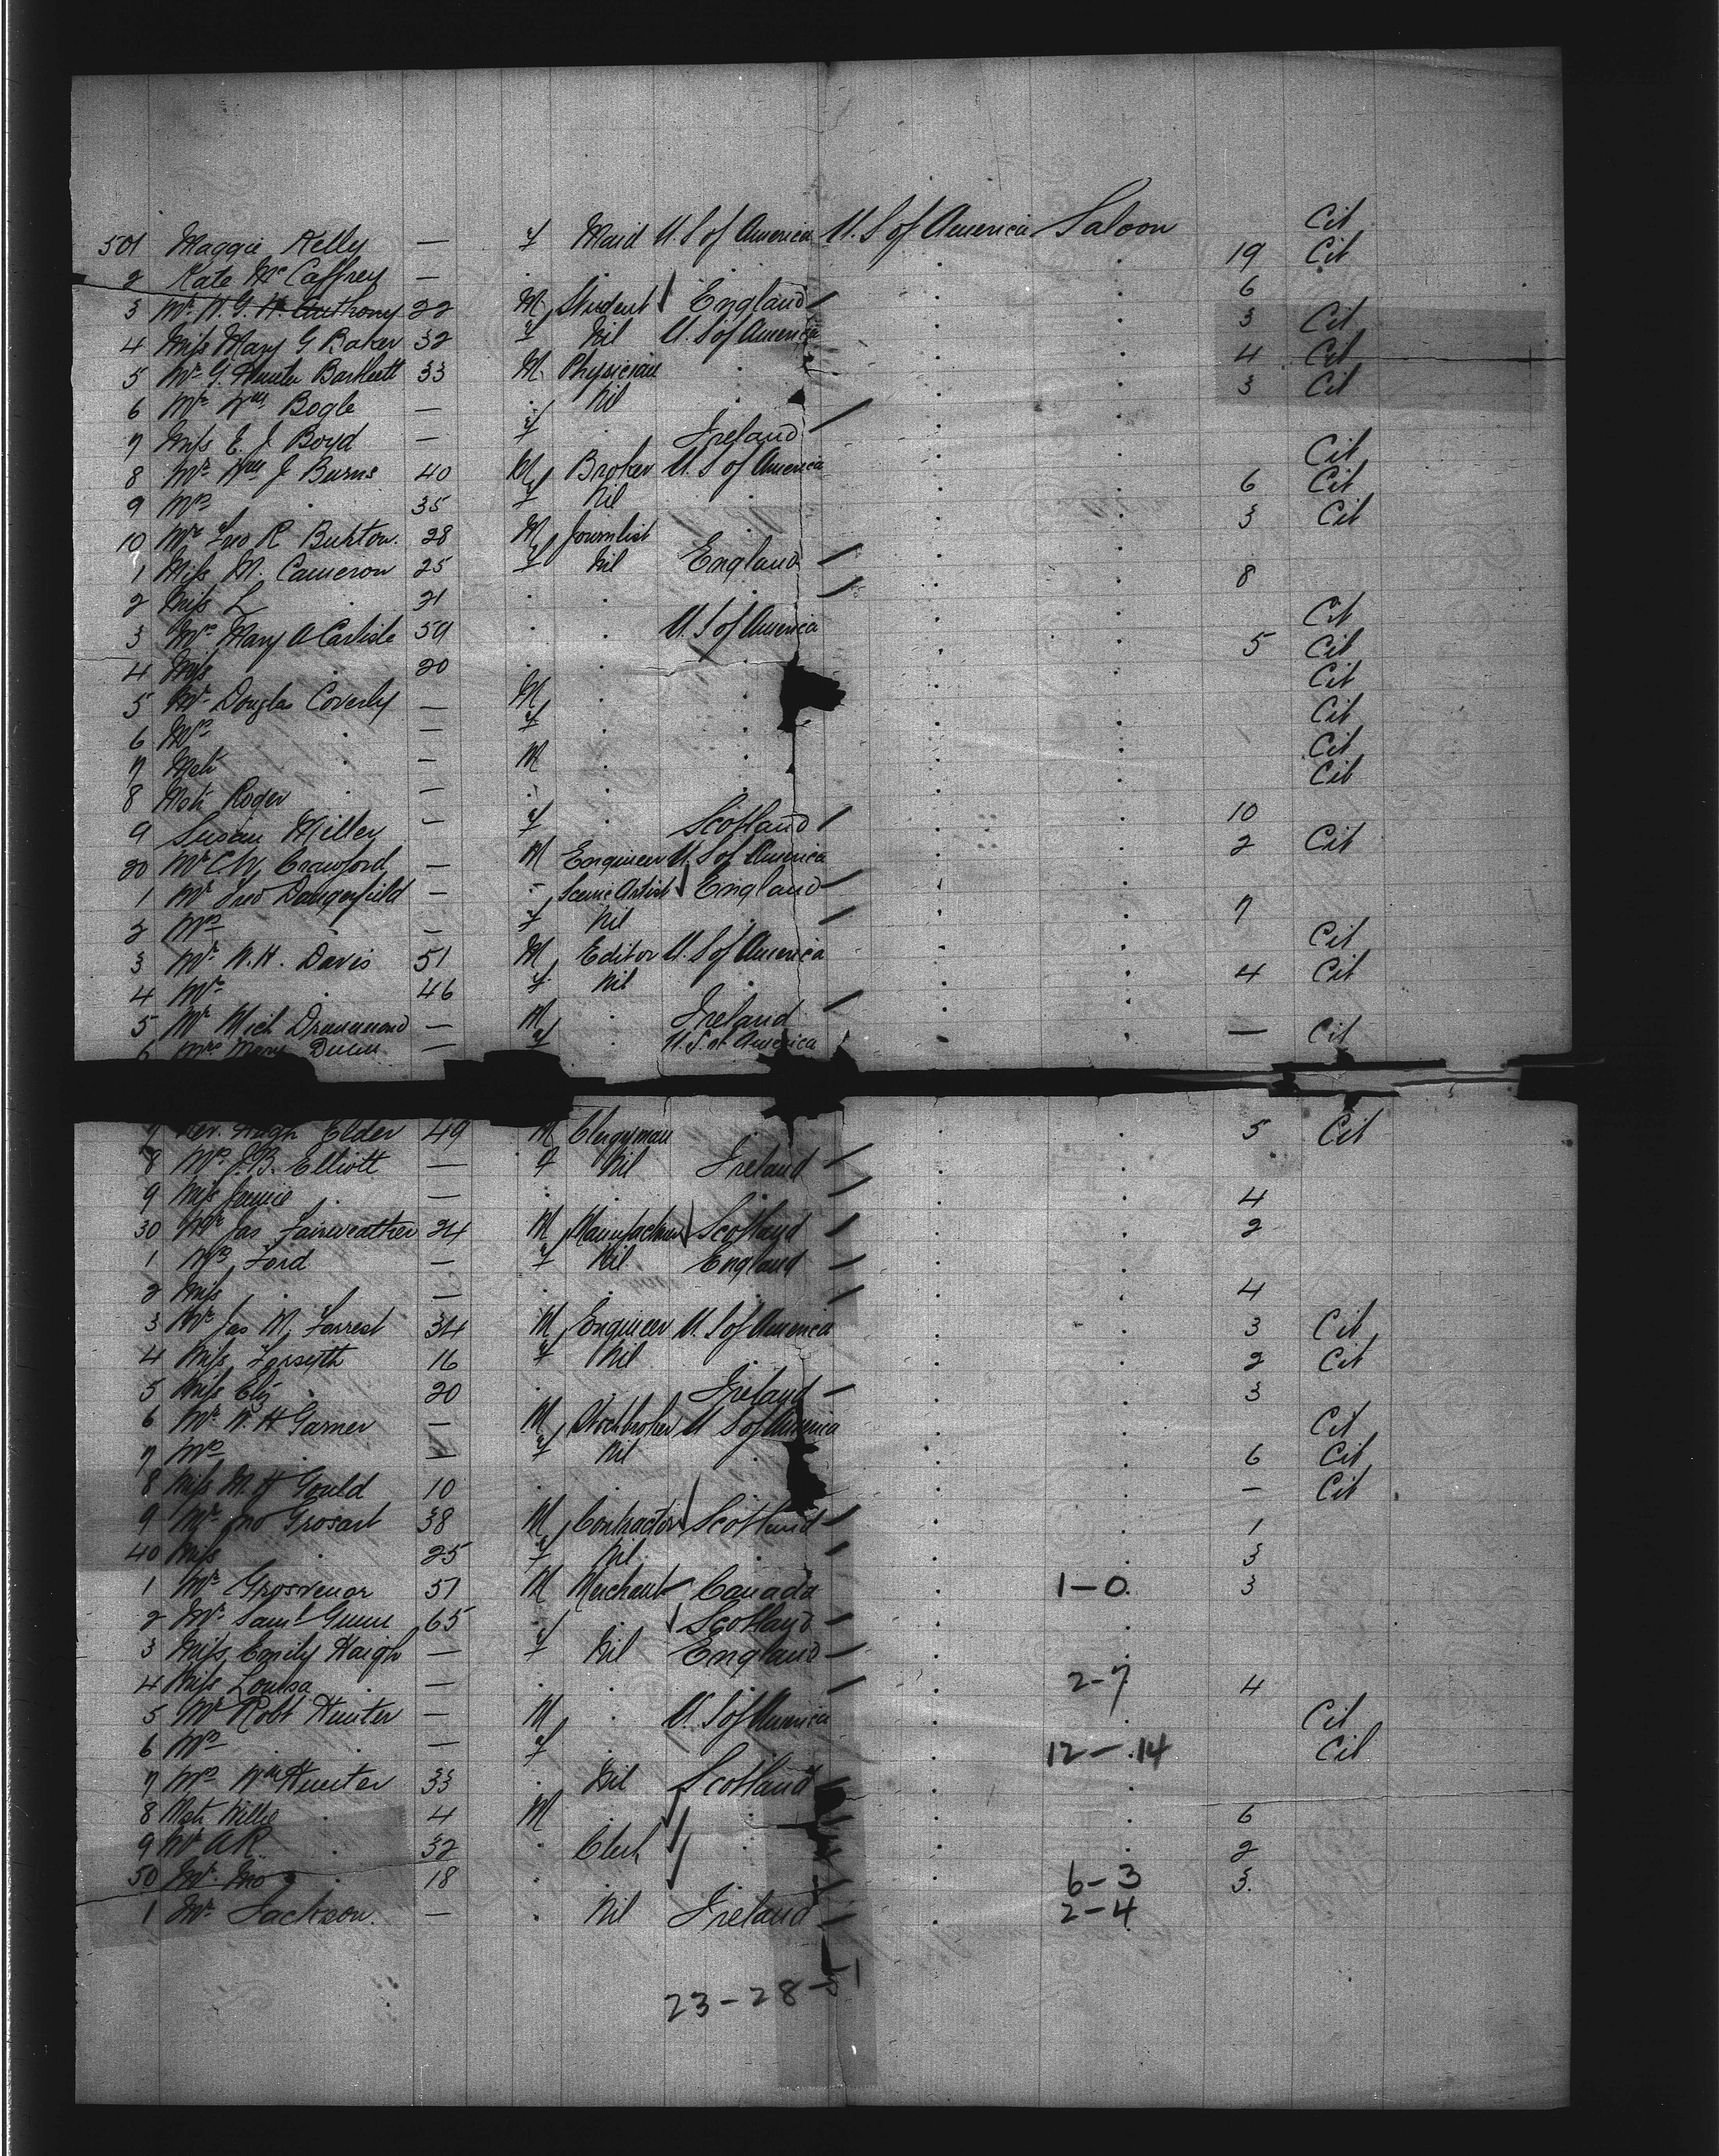 501 Maggie Kelly — f Maid U.S of America U.S of America Saloon Cit
2 Kate McCaffrey — . . . . 19 Cit
3 Mr W.G.H. Anthony 22 M Student England . . 6
4 Miss Mary G Baker 32 f Nil U.S of America . . 3 Cit
5 Mr G. Hunter Bartlett 33 M Physician . . . 4 Cit
6 Mr Wm Bogle — . Nil . . . 3 Cit
7 Miss E. J Boyd — f . Ireland . .
8 Mr Wm J Burns 40 M Broker U.S of America . . Cit
9 Mrs . 35 f Nil . . . 6 Cit
10 Mr Jno R Buxton. 28 M Journlist . . . 3 Cit
1 Miss M. Cameron 25 f Nil England . .
2 Miss L . 21 . . . . . 8
3 Mrs Mary A Carlisle 59 . . U.S of America . . Cit
4 Miss . 20 . . . . . 5 Cit
5 Mr Douglas Coverly — M . . . . Cit
6 Mrs . — f . . . . Cit
7 Mstr . — M . . . . Cit
8 Mstr Roger . — . . . . . Cit
9 Susan Miller — f . Scotland . . 10
20 Mr C.W. Crawford — M Engineer U.S of America . . 2 Cit
1 Mr Fred Dangerfield — . Scene Artist England . .
2 Mrs . — f Nil . . . 7
3 Mr W.H. Davis 51 M Editor U.S of America . . Cit
4 Mrs . 46 f Nil . . . 4 Cit
5 Mr Mich Drummond — M . Ireland . .
6 Mrs Mary — f . U.S of America . . — Cit
7 Rev. Hugh Elder 49 M Clergyman . . . 5 Cit
8 Mrs J.B. Elliott — f Nil Ireland . .
9 Miss Jennie . — . . . . . 4
30 Mr Jas Fairweather 24 M Manufacturer Scotland . . 2
1 Mrs Ford — f Nil England . .
2 Miss . — . . . . . 4
3 Mr Jas M. Forrest 34 M Engineer U.S of America . . 3 Cit
4 Miss Forsyth 16 f Nil . . . 2 Cit
5 Miss Eliz . 20 . . Ireland . . 3
6 Mr W.H Garner — M Stockbroker U S of America . . Cit
7 Mrs . — f Nil . . . 6 Cit
8 Miss M. H Gould 10 . . . . . — Cit
9 Mr Jno Grosart 38 M Contractor Scotland . . 1
40 Miss . 25 f Nil . . . 3
1 Mr Grosvenor 57 M Merchant Canada . 1-0 . 3
2 Mr Saml Gunn 65 . . Scotland . .
3 Miss Emily Haigh — f Nil England . .
4 Miss Louisa . — . . . . 2-7 4
5 Mr Robt Hunter — M . U.S of America . . Cit
6 Mrs . — f . . . 12-14 Cit
7 Mrs Wm Hunter 33 . Nil Scotland . .
8 Mstr Willie . 4 M . . . . 6
9 Mr A R . 32 . Clerk . . . 2
50 Mr Jno . 18 . . . . 6-3 3.
1 Mr Jackson. — . Nil Ireland . 2-4
23-28-51